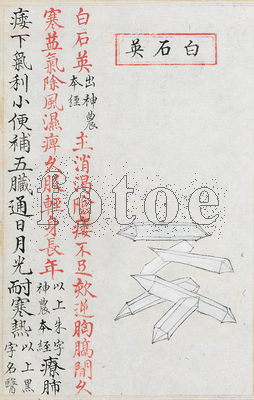 白石英
白石英出神農本經主消渴陰痿不足欬逆胸膈間久
寒益氣除風濕痹久服輕身長年以上朱字神農本經療肺
痿下氣利小便補五臟通日月光耐寒熱以上黑字名醫
fotoe